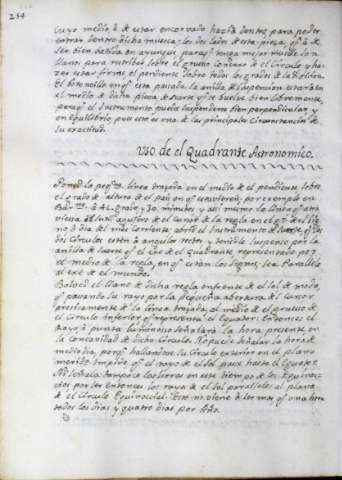 254
cuyo medio, à de estar encorvado hazia dentro para poder
entrar dentro dicha muesca: los dos lados de esta presa, qe. à de
ser bien batida en ayunque, para qe. tenga mejor muelle son
llanos para estribar sobre el gruesso Concavo de el Circulo, y ha-
zer estar firme el pendiente sobre todos los grados de la
El botonsillo en qe. està passada la anilla de suspencion estarà en
el medio de dicha pieza, de suerte qe. se buelva bien libremente,
para qe. el Instrumento quede suspendido bien perpendicular, y
en equilibrio, pues esta es una de las principales circunstancias de
su exactitud.
Uso de el Quadrante Astronomico.
Poned la peqa. linea trazada en el medio de el pendiente sobre
el grado de altura de el pais en qe. estuviereis: por exemplo en
à 41 grados y 30 minutos, y assi mismo la linea qe. atra
viesa el agujero de el cursor de la regla en el gº. de el Sig
no ò dia de el mes corriente, abrid el Instrumento de suerte, qe. los
dos Circulos esten à angulos rectos, y tenedle suspenso por la
anilla de suerte qe. el Exe de el quadrante, representado por
el medio de la regla, en qe. estàn los Signos, sea Parallelo
al exe de el mundo.
Bolved el llano de dicha regla enfrente de el Sol de modo,
qe. passando su rayo por la pequeña abertura de el cursor
precisamente la linea trazada al medio de el gruesso de
el Circulo inferior, qe. representa el Equador. Entonces el
rayo, ò punta luminosa señalarà la hora presente en
la concavidad de dicho Circulo. No puede señalar la hora de
medio dia, porqe. hallandose su Circulo exterior en el plano
meridio. impide qe. el rayo de el Sol passe hasta el Equador.
No señala tampoco las horas en este tiempo de los Equinoc-
cios, por ser entonces los rayos de el Sol paralleles al plano
de el Circulo Equinoccial. Esto no viene à ser mas qe. una hora
todos los dias, y quatro dias por Año.